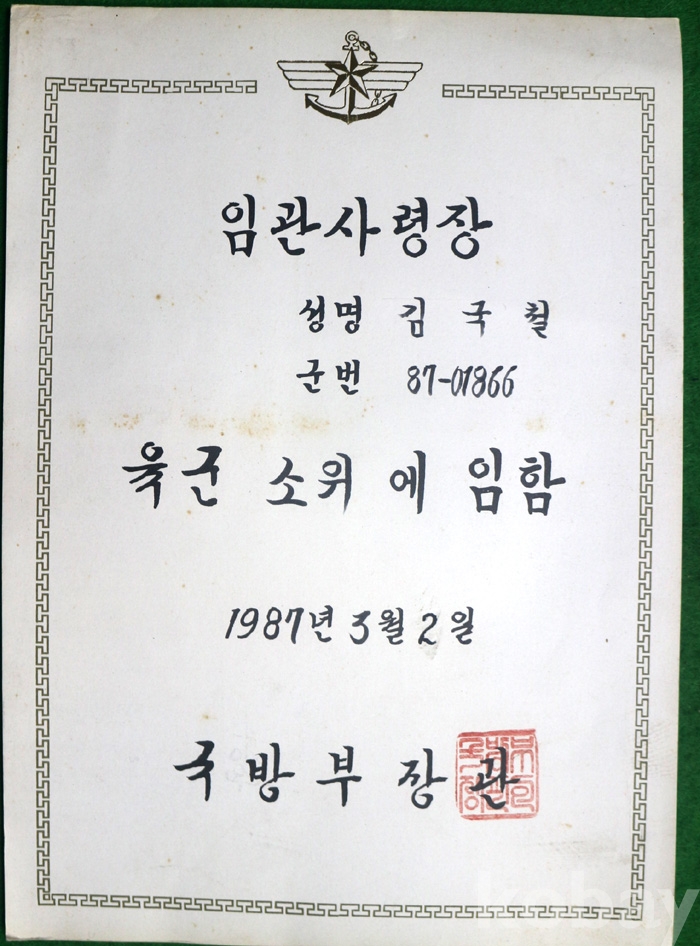 임관사령장
성명 김국철
군번 87-01866
육군 소위 에 임함
1987년 3월 2일
국방부장관
kobay